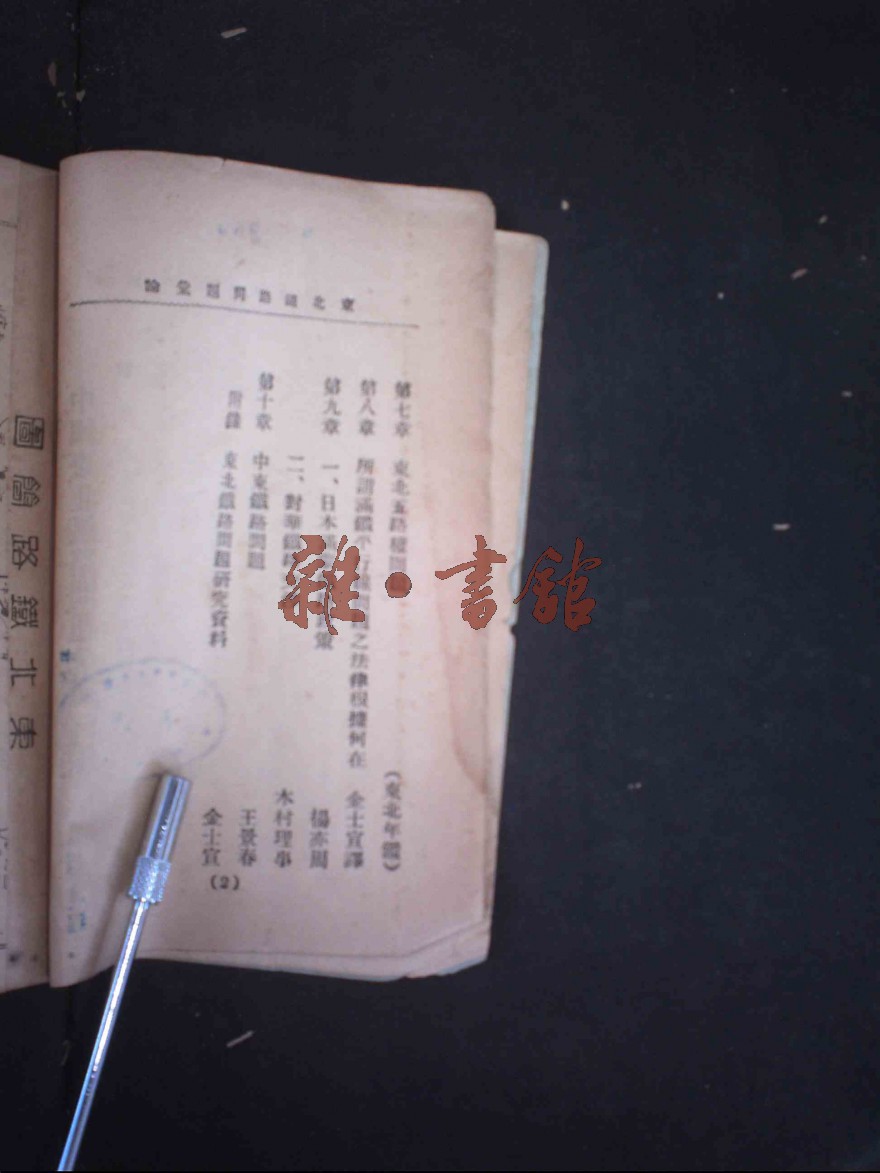 東北鐵路問題彙論
第七章 東北五路權問題 (東北年鑑)
第八章 所謂滿鐵平行線 之法律根據何在 金士宣譯
第九章 一、日本 策 楊亦周
二、對華鐵路 木村理事
第十章 中東鐵路問題 王景春
附錄 東北鐵路問題研究資料 金士宣
(2)
東北鐵路簡圖
雜·書館